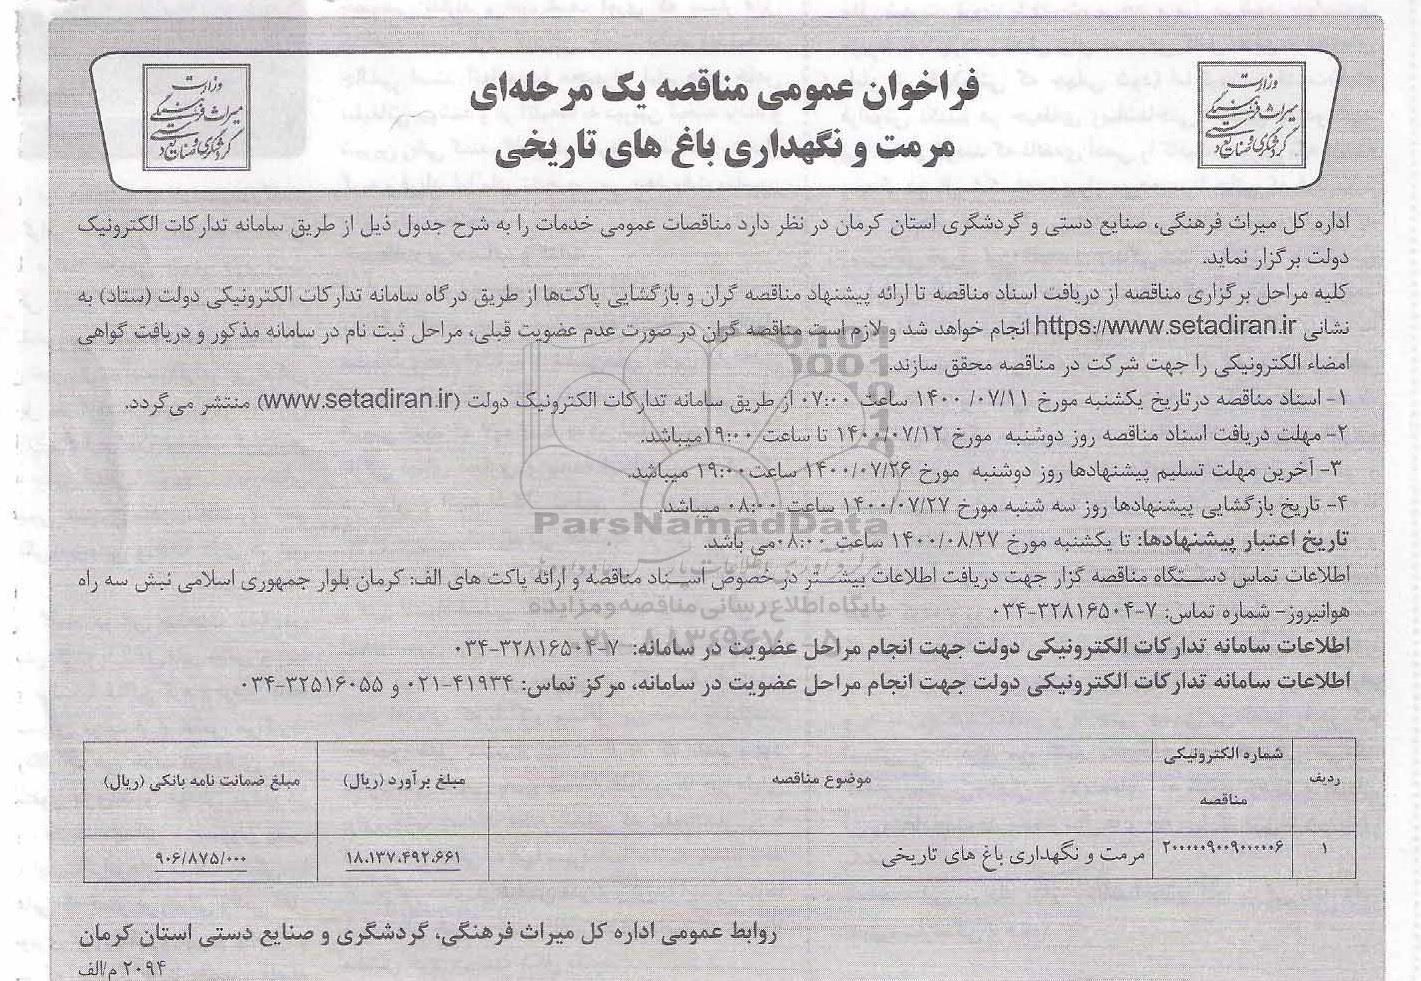 وزارت
میراث فرهنگی
گردشگری و صنایع دستی
فراخوان عمومی مناقصه یک مرحله‌ای
مرمت و نگهداری باغ های تاریخی
وزارت
میراث فرهنگی
گردشگری و صنایع دستی
اداره کل میراث فرهنگی، صنایع دستی و گردشگری استان کرمان در نظر دارد مناقصات عمومی خدمات را به شرح جدول ذیل از طریق سامانه تدارکات الکترونیک
دولت برگزار نماید.
کلیه مراحل برگزاری مناقصه از دریافت اسناد مناقصه تا ارائه پیشنهاد مناقصه گران و بازگشایی پاکت‌ها از طریق درگاه سامانه تدارکات الکترونیکی دولت (ستاد) به
نشانی https://www.setadiran.ir انجام خواهد شد و لازم است مناقصه گران در صورت عدم عضویت قبلی، مراحل ثبت نام در سامانه مذکور و دریافت گواهی
امضاء الکترونیکی را جهت شرکت در مناقصه محقق سازند.
۱- اسناد مناقصه درتاریخ یکشنبه مورخ ۱۴۰۰/۰۷/۱۱ ساعت ۰۷:۰۰ از طریق سامانه تدارکات الکترونیک دولت (www.setadiran.ir) منتشر می‌گردد.
۲- مهلت دریافت اسناد مناقصه روز دوشنبه مورخ ۱۴۰۰/۰۷/۱۲ تا ساعت ۱۹:۰۰میباشد.
۳- آخرین مهلت تسلیم پیشنهادها روز دوشنبه مورخ ۱۴۰۰/۰۷/۲۶ ساعت۱۹:۰۰ میباشد.
۴- تاریخ بازگشایی پیشنهادها روز سه شنبه مورخ ۱۴۰۰/۰۷/۲۷ ساعت ۰۸:۰۰ میباشد.
ParsNamadData
تاریخ اعتبار پیشنهادها: تا یکشنبه مورخ ۱۴۰۰/۰۸/۲۷ ساعت ۰۸:۰۰می باشد.
اطلاعات تماس دستگاه مناقصه گزار جهت دریافت اطلاعات بیشتر در خصوص اسناد مناقصه و ارائه پاکت های الف: کرمان بلوار جمهوری اسلامی نبش سه راه
پایگاه اطلاع رسانی مناقصه و مزایده
هوانیروز- شماره تماس: ۷-۳۲۸۱۶۵۰۴-۰۳۴
اطلاعات سامانه تدارکات الکترونیکی دولت جهت انجام مراحل عضویت در سامانه: ۷-۳۲۸۱۶۵۰۴-۰۳۴
اطلاعات سامانه تدارکات الکترونیکی دولت جهت انجام مراحل عضویت در سامانه، مرکز تماس: ۴۱۹۳۴-۰۲۱ و ۳۲۵۱۶۰۵۵-۰۳۴
ردیف
شماره الکترونیکی
مناقصه
موضوع مناقصه
مبلغ برآورد (ریال)
مبلغ ضمانت نامه بانکی (ریال)
۱
۲۰۰۰۰۰۹۰۰۹۰۰۰۰۰۶
مرمت و نگهداری باغ های تاریخی
۱۸،۱۳۷،۴۹۲،۶۶۱
۹۰۶/۸۷۵/۰۰۰
روابط عمومی اداره کل میراث فرهنگی، گردشگری و صنایع دستی استان کرمان
۲۰۹۴ م/الف